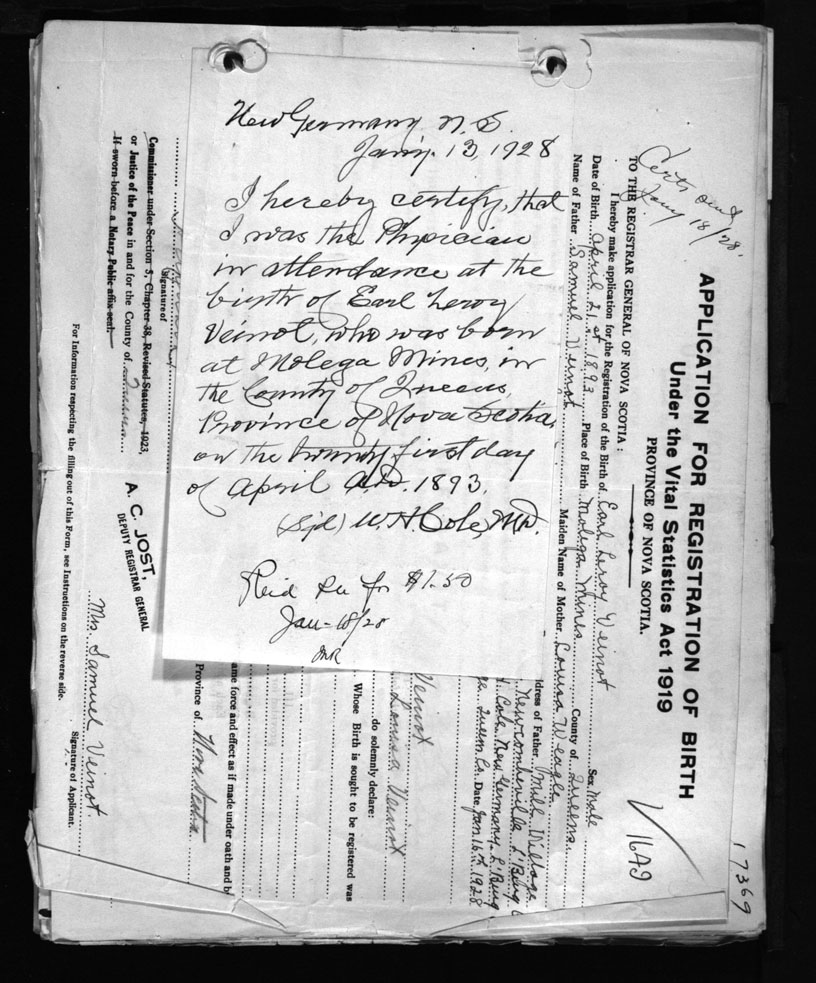 New Germany N.S.
Jan'y. 13, 1928
I hereby certify, that
I was the Physician
in attendance at the
birth of Earl Leroy
Veinot, who was born
at Molega Mines, in
the County of Queens,
Province of Nova Scotia,
on the twenty first day
of April A.D. 1893.
(Sgd) W. H. Cole, M.D.
$1.50
Jan-18/28
Certs sent
Jany 18/28.
17369
1649
APPLICATION FOR REGISTRATION OF BIRTH
Under the Vital Statistics Act 1919
PROVINCE OF NOVA SCOTIA.
TO THE REGISTRAR GENERAL OF NOVA SCOTIA :
I hereby make application for the Registration of the Birth of Earl Leroy Veinot Sex Male
Date of Birth April 21st 1893 Place of Birth Molega Mines County of Queens
Name of Father Samuel Veinot Maiden Name of Mother Louisa Weagle
dress of Father Mill Village
Newcombville L'Burg C
Cole New Germany L'Burg
Queen Co. Date Jan 16th 1928
Veinot
Louisa Veinot
do solemnly declare:
Whose Birth is sought to be registered was
ame force and effect as if made under oath and b
Province of Nova Scotia
Signature of
Commissioner under Section 5, Chapter 38, Revised Statutes, 1923,
or Justice of the Peace in and for the County of Queens
If sworn before a Notary Public affix seal.
A. C. JOST,
DEPUTY REGISTRAR GENERAL
Mrs. Samuel Veinot.
Signature of Applicant.
For Information respecting the filling out of this Form, see Instructions on the reverse side.